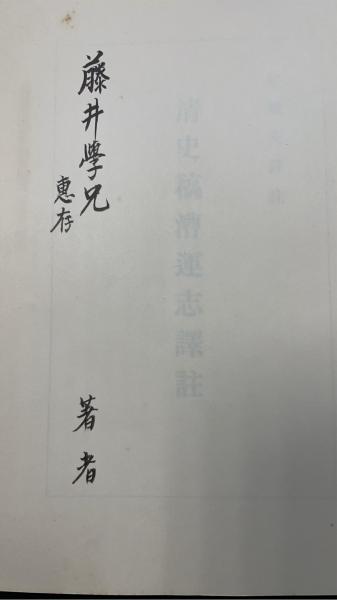 藤井學兄
惠存
著者
清史稿漕運志譯註